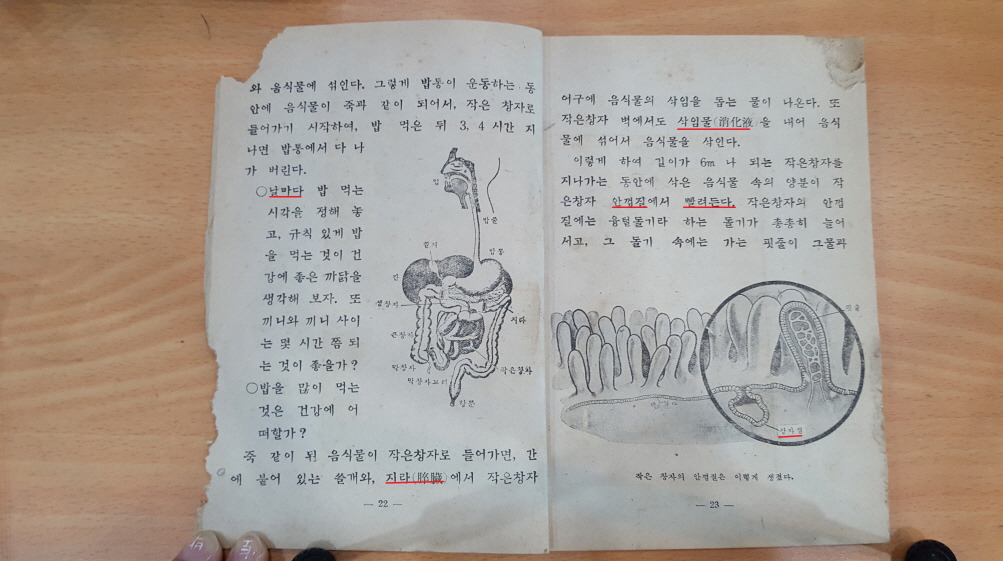 와 음식물에 섞인다. 그렇게 밥통이 운동하는 동
안에 음식물이 죽과 같이 되어서, 작은 창자로
들어가기 시작하여, 밥 먹은 뒤 3, 4 시간 지
나면 밥통에서 다 나
가 버린다.
○날마다 밥 먹는
시각을 정해 놓
고, 규칙 있게 밥
을 먹는 것이 건
강에 좋은 까닭을
생각해 보자. 또
끼니와 끼니 사이
는 몇 시간 쯤 되
는 것이 좋을가?
○밥을 많이 먹는
것은 건강에 어
떠할가?
입
밥줄
쓸개
밥통
간
샘창자
지라
큰창자
막창자
작은창자
막창자꼬리
항문
죽 같이 된 음식물이 작은창자로 들어가면, 간
에 붙어 있는 쓸개와, 지라(膵臓)에서 작은창자
— 22 —
어구에 음식물의 삭임을 돕는 물이 나온다. 또
작은창자 벽에서도 삭임물(消化液)을 내어 음식
물에 섞어서 음식물을 삭인다.
이렇게 하여 길이가 6m 나 되는 작은창자를
지나가는 동안에 삭은 음식물 속의 양분이 작
은창자 안껍질에서 빨려든다. 작은창자의 안껍
질에는 융털돌기라 하는 돌기가 총총히 늘어
서고, 그 돌기 속에는 가는 핏줄이 그물과
핏줄
창자샘
작은 창자의 안껍질은 이렇게 생겼다.
— 23 —